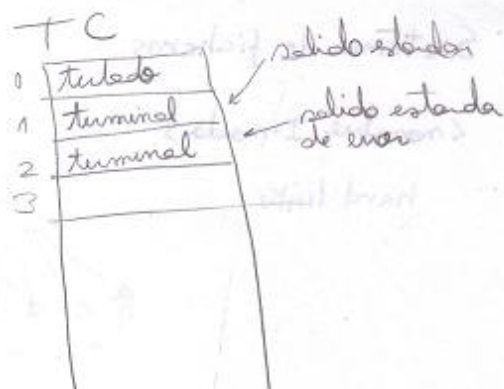 TC
0 teclado
1 terminal
2 terminal
3
salida estandar
salida estandar
de error
hard link